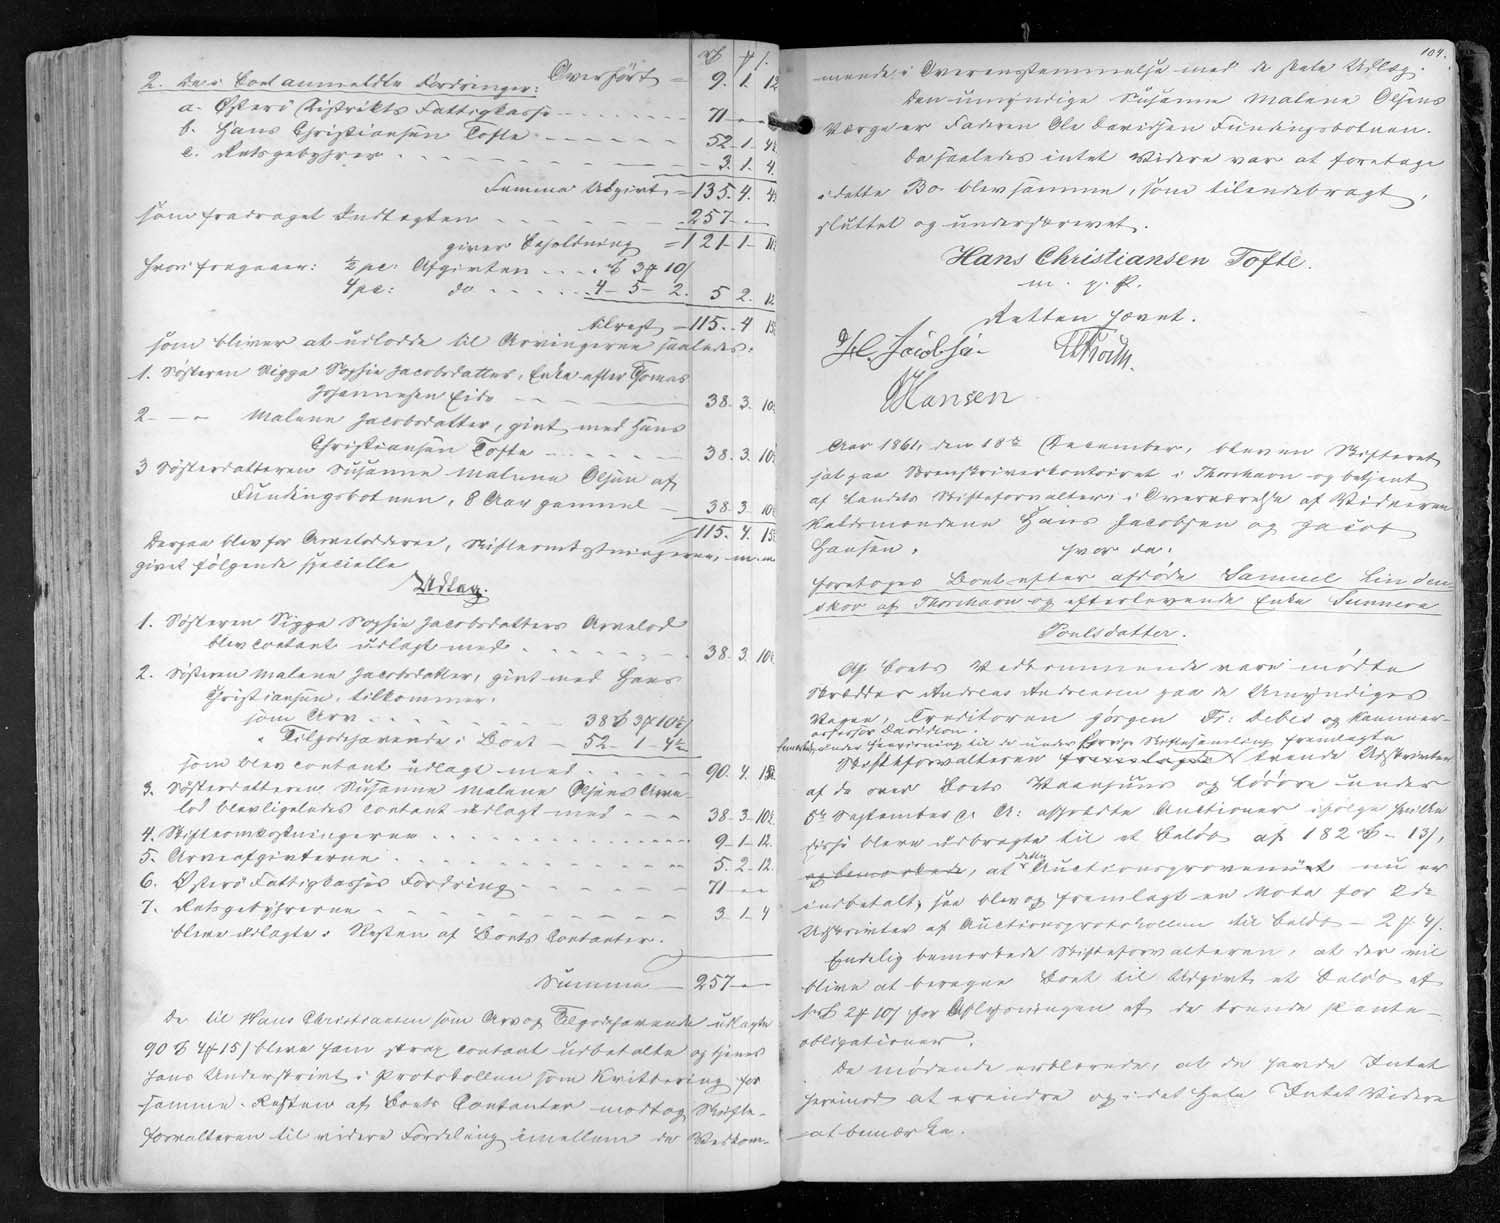 Overført = 9. 1. 12
2. De i Boet anmeldte Fordringer:
a. Østerø Distrikts Fattigkasse - - - 71 - -
b. Hans Christiansen Tofte - - - 52 - 1 - 4½
c. Retsgebyhrer - - - 3. 1. 4.
Summa Udgivt = 135. 4. 4½
som fradraget Indtægten - - - 257 - -
giver Beholdning = 121 - 1 - 11½
hvori fragaaer: ½ pc: Afgivten - - - 3 10
4 pc: do - - - 4 - 5 - 2. 5 2. 12
tilrest - 115. - 4 15½
som bliver at udlodde til Arvingerne saaledes:
1. Søsteren Sigga Sophie Jacobsdatter, Enke efter Thomas
Johannesen Eide - - 38. 3. 10½
2 - " Malene Jacobsdatter, givt med Hans
Christiansen Tofte - - - 38. 3. 10½
3 Søsterdatteren Susanne Malene Olsen af
Fundingsbotnen, 8 Aar gammel - 38. 3. 10½
115. 4. 15½
Derpaa blev for Arvelodderne, Skifteomkostningerne, m. m.
givet følgende specielle
Udlæg.
1. Søsteren Sigga Sophie Jacobsdatters Arvelod
blev contant udlagt med - - - 38. 3. 10½
2. Søsteren Malene Jacobsdatter, givt med Hans
Christiansen, tilkommer:
som Arv - - - 38 3 10½
" Tilgodehavende i Boet - 52 - 1 - 4½
som blev contant udlagt med - - - 90. 4. 15
3. Søsterdatteren, Susanne Malene Olsens Arve-
lod blev ligeledes contant udlagt med - - - 38 - 3 - 10½
4. Skifteomkostningerne - - - 9 - 1 - 12.
5. Arveafgivterne - - - 5. 2 - 12.
6. Østerø Fattigkasses Fordring - - - 71 - -
7. Retsgebyhrerne - - - 3 - 1 - 4
bleve udlagte i Resten af Boets Contanter.
Summa - 257 - -
De til Hans Christiansen som Arv og Tilgodehavende udlagte
90 4 15 bleve ham strax contant udbetalte og tjener
hans Underskrivt i Protokollen som Kvittering for
samme. Resten af Boets Contanter modtog Skifte-
forvalteren til videre Fordeling imellem de Vedkom-
104.
mende i Overensstemmelse med de skete Udlæg.
Den umyndige Susanne Malene Olsens
Værge er Faderen Ole Davidsen Fundingsbotnen.
Da saaledes intet Videre var at foretage
i dette Bo blev samme, som tilendebragt,
sluttet og underskrevet.
Hans Christiansen Tofte.
m. p. P.
Retten hævet.
H. Jacobsen
JHansen
Aar 1861, den 18de December, blev en Skifteret
sat paa Sorenskriverkontoiret i Thorshavn og betjent
af Landets Skifteforvalter, i Overværelse af Vidnerne
Retsmændene Hans Jacobsen og Jacob
Hansen.
hvor da:
foretoges Boet efter afdøde Samuel Linden-
skov af Thorshavn og efterlevende Enke Sunneva
Poulsdatter.
Af Boets Vedkommende vare mødte
Skrædder Andreas Andreasen paa de Umyndiges
Vegne, Creditoren Jørgen Fr: Debes og Kammer-
assessor Davidsen.
under Henvisning til de under forrige Skiftesamling fremlagte
Skifteforvalteren fremlagde trende Udskrivter
af de over Boets Vaanhuus og Løsøre under
5te September d. A: afholdte Auctioner ifølge hvilke
disse bleve udbragte til et Beløb af 182 - 13,
og bemærkede, at dette Auctionsprovenüet nu er
indbetalt; saa blev og fremlagt en Nota for 2de
Udskrivter af Auctionsprotokollen til Beløb - 2 4.
Endelig bemærkede Skifteforvalteren, at der vil
blive at beregne Boet til Udgivt et Beløb af
1 2 10 for Aflysningen af de trende Pante-
obligationer.
De mødende erklærede, at de havde Intet
herimod at erindre og i det Hele Intet Videre
at bemærke.